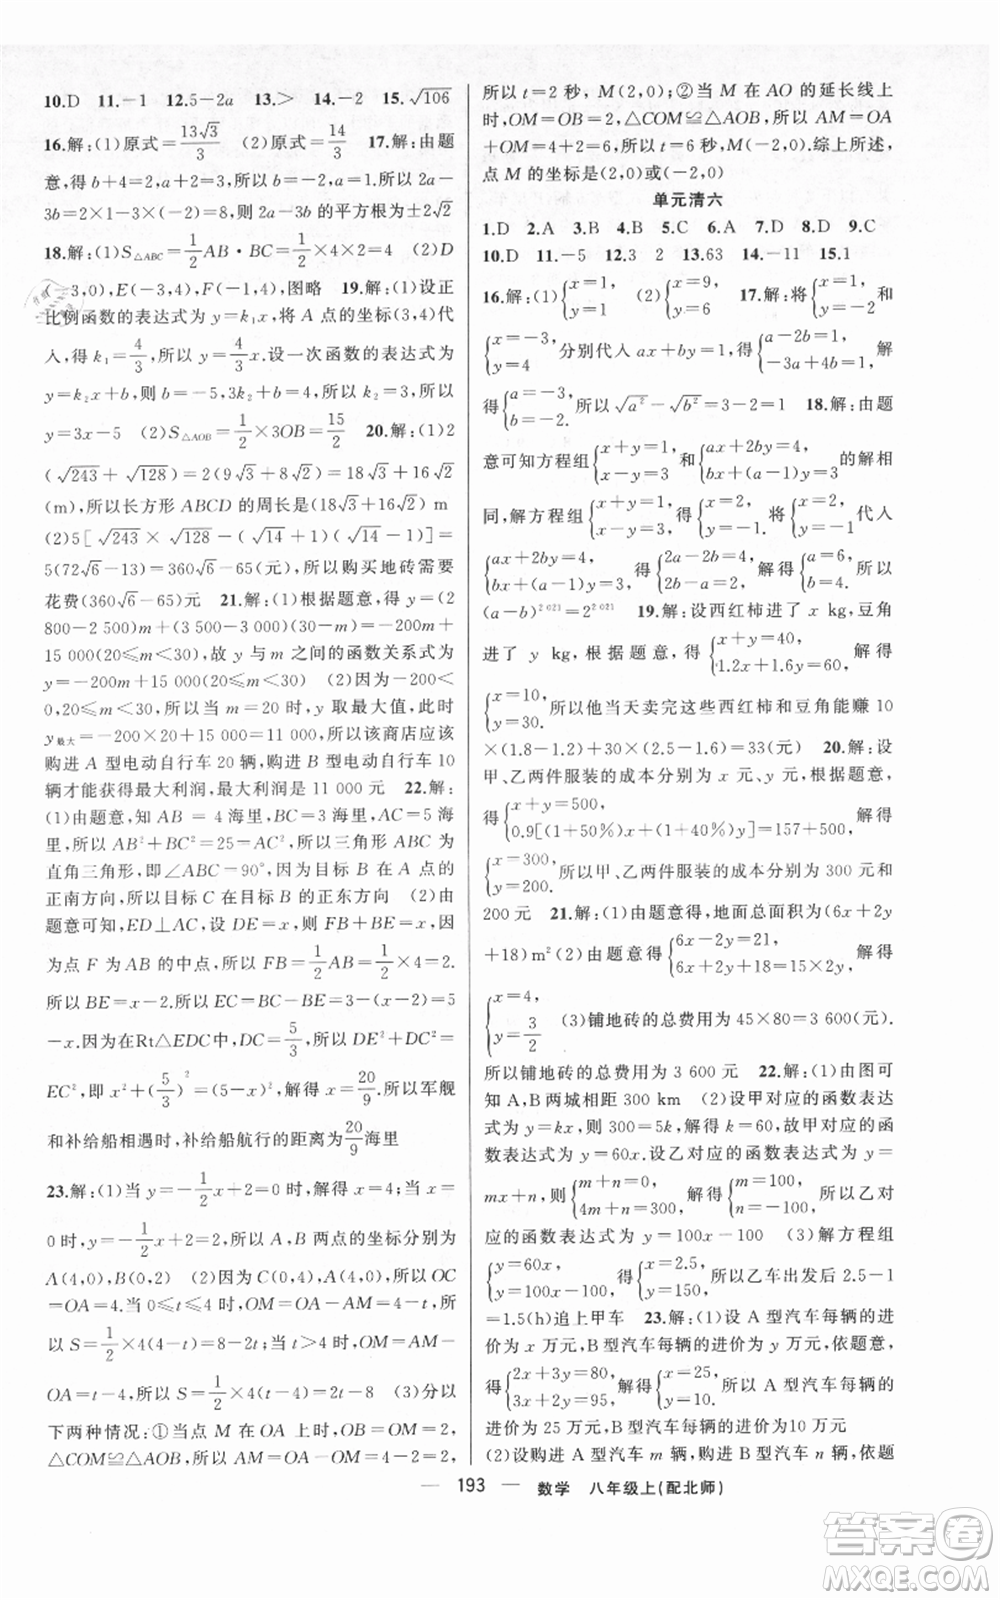 10.D 11.-1 12.5-2a 13.> 14.-2 15.√106
16.解:(1)原式=13√3/3 (2)原式=14/3 17.解:由题
意,得b+4=2,a-1=1,所以b=-2,a=2.所以2a-
3b=2×2-3×(-2)=8,则2a-3b的平方根为±2√2
18.解:(1)S△ABC=1/2AB·BC=1/2×2×2=4 (2)D
(-3,0),E(-2,-2),F(-1,0),图略 19.解:(1)设正
比例函数的表达式为y=k₁x,将A点的坐标(3,4)代
入,得k₁=4/3,所以y=4/3x.设一次函数的表达式为
y=k₂x+b,则b=-5,3k₂+b=4,所以k₂=3,所以
y=3x-5 (2)S△AOB=1/2×3OB=15/2 20.解:(1)2
(√243+√128)=2(9√3+8√2)=18√3+16√2
(m),所以长方形ABCD的周长是(18√3+16√2) m
(2)5[√243×√128-(√13+1)(√13-1)]=
5(72√6-13)=360√6-65(元),所以购买地砖需要
花费(360√6-65)元 21.解:(1)根据题意,得y=(2
800-2 500)m+(3 500-3 000)(30-m)=-200m+
15 000(20≤m<30),故y与m之间的函数关系式为
y=-200m+15 000(20≤m<30) (2)因为-200<
0,20≤m<30,所以当m=20时,y取最大值,此时
y最大=-200×20+15 000=11 000,所以该商店应该
购进A型电动自行车20辆,购进B型电动自行车10
辆才能获得最大利润,最大利润是11 000元 22.解:
(1)由题意,知AB=4海里,BC=3海里,AC=5海
里,所以AB²+BC²=25=AC²,所以三角形ABC是
直角三角形,即∠ABC=90°,因为目标B在A点的
正南方向,所以目标C在目标B的正东方向 (2)根据
题意可知,ED⊥AC,设DE=x,则FB+BE=x,因
为点F为AB的中点,所以FB=1/2AB=1/2×4=2.
所以BE=x-2.所以EC=BC-BE=3-(x-2)=5
-x.因为在Rt△EDC中,DC=5/3,所以DE²+DC²=
EC²,即x²+(5/3)²=(5-x)²,解得x=20/9,所以军舰
和补给船相遇时,补给船航行的距离为20/9海里
23.解:(1)当y=-1/2x+2=0时,解得x=4;当x=
0时,y=-1/2x+2=2,所以A,B两点的坐标分别为
A(4,0),B(0,2) (2)因为C(0,4),A(4,0),所以OC
=OA=4.当0≤t≤4时,OM=OA-AM=4-t,所
以S=1/2×4(4-t)=8-2t;当t>4时,OM=AM-
OA=t-4,所以S=1/2×4(t-4)=2t-8 (3)分以
下两种情况:①当点M在OA上时,OB=OM=2,
△COM≌△AOB,所以AM=OA-OM=4-2=2,
所以t=2秒,M(2,0);②当M在AO的延长线上
时,OM=OB=2,△COM≌△AOB,所以AM=OA
+OM=4+2=6,所以t=6秒,M(-2,0).综上所述,
点M的坐标是(2,0)或(-2,0)
单元清六
1.D 2.A 3.B 4.B 5.C 6.A 7.D 8.D 9.C
10.D 11.-5 12.3 2 13.63 14.-11 15.1
16.解:(1){x=1, y=1 (2){x=9, y=6 17.解:将{x=1, y=-2和
{x=-3, y=4分别代入ax+by=1,得{a-2b=1, -3a+4b=1, 解
得{a=-3, b=-2.所以√a²-√b²=3-2=1 18.解:由题
意可知方程组{x+y=1, x-y=3和{ax+2by=4, bx+(a-1)y=3的解相
同,解方程组{x+y=1, x-y=3,得{x=2, y=-1.将{x=2, y=-1代入
{ax+2by=4, bx+(a-1)y=3,得{2a-2b=4, 2b-a+1=3,解得{a=6, b=4.所以
(a-b)²⁰²¹=2²⁰²¹ 19.解:设西红柿进了x kg,豆角
进了y kg,根据题意,得{x+y=40, 1.2x+1.6y=60,解得
{x=10, y=30.所以他当天卖完这些西红柿和豆角赚10
×(1.8-1.2)+30×(2.5-1.6)=33(元) 20.解:设
甲、乙两件服装的成本分别为x元和y元,根据题意,
得{x+y=500, 0.9[(1+50%)x+(1+40%)y]=157+500,解得
{x=300, y=200.所以甲、乙两件服装的成本分别为300元和
200元 21.解:(1)由题意得,地面总面积为(6x+2y
+18)m² (2)由题意得{6x-2y=21, 6x+2y+18=15×2y,解得
{x=4, y=3/2 (3)铺地砖的总费用为45×80=3 600(元).
所以铺地砖的总费用为3 600元 22.解:(1)由图可
知A,B两城相距300 km (2)设甲对应的函数表达
式为y=kx,则300=5k,解得k=60,故甲对应的函
数表达式为y=60x.设乙对应的函数表达式为y=
mx+n,则{m+n=0, 4m+n=300,解得{m=100, n=-100,所以乙对
应的函数表达式为y=100x-100 (3)解方程组
{y=60x, y=100x-100,得{x=2.5, y=150,所以乙车出发后2.5-1
=1.5(h)追上甲车 23.解:(1)设A型汽车每辆的进
价为x万元,B型汽车每辆的进价为y万元,依题意,
得{2x+3y=80, 3x+2y=95,解得{x=25, y=10.所以A型汽车每辆的
进价为25万元,B型汽车每辆的进价为10万元
(2)设购进A型汽车m辆,购进B型汽车n辆,依题
— 193 — 数学 八年级上(配北师)
答案圈
MXQE.COM